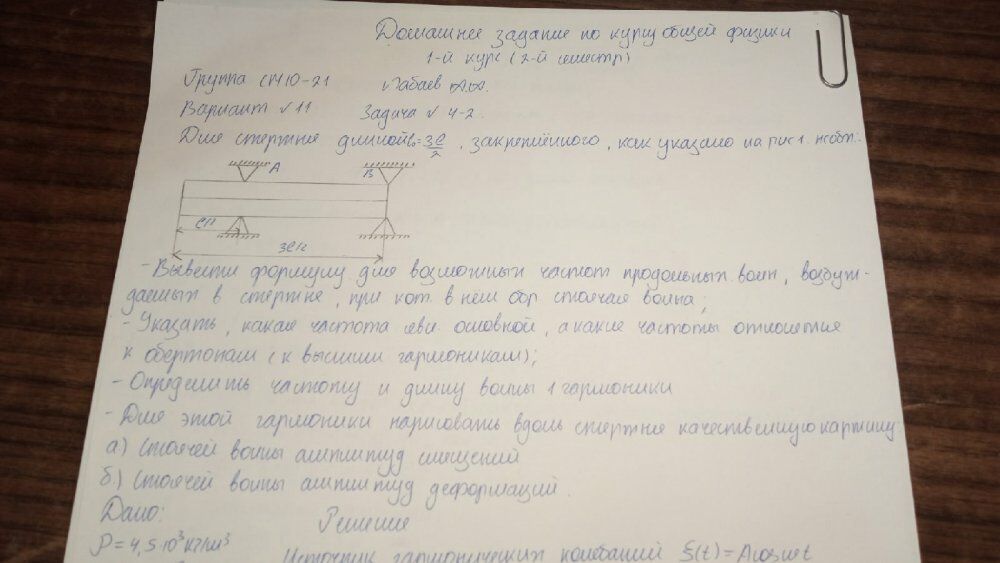 Домашнее задание по курсу общей физики
1-й курс (2-й семестр)
Группа СМ10-21 Бабаев А.А.
Вариант №11 Задача № 4-2.
Для стержня длиной l₀=3l/2, закреплённого, как указано на рис 1. необх.:
A
B
l/2
3l/2
- Вывести формулу для возможных частот продольных волн, возбуж-
даемых в стержне, при кот. в нём обр. стоячая волна;
- Указать, какая частота явл. основной, а какие частоты относятся
к обертонам (к высшим гармоникам);
- Определить частоту и длину волны 1 гармоники
- Для этой гармоники нарисовать вдоль стержня качественную картину
а) Стоячей волны амплитуд смещений
б) Стоячей волны амплитуд деформаций.
Дано: Решение
ρ = 4,5·10³ кг/м³
Источник гармонических колебаний ξ(t) = A cos ωt